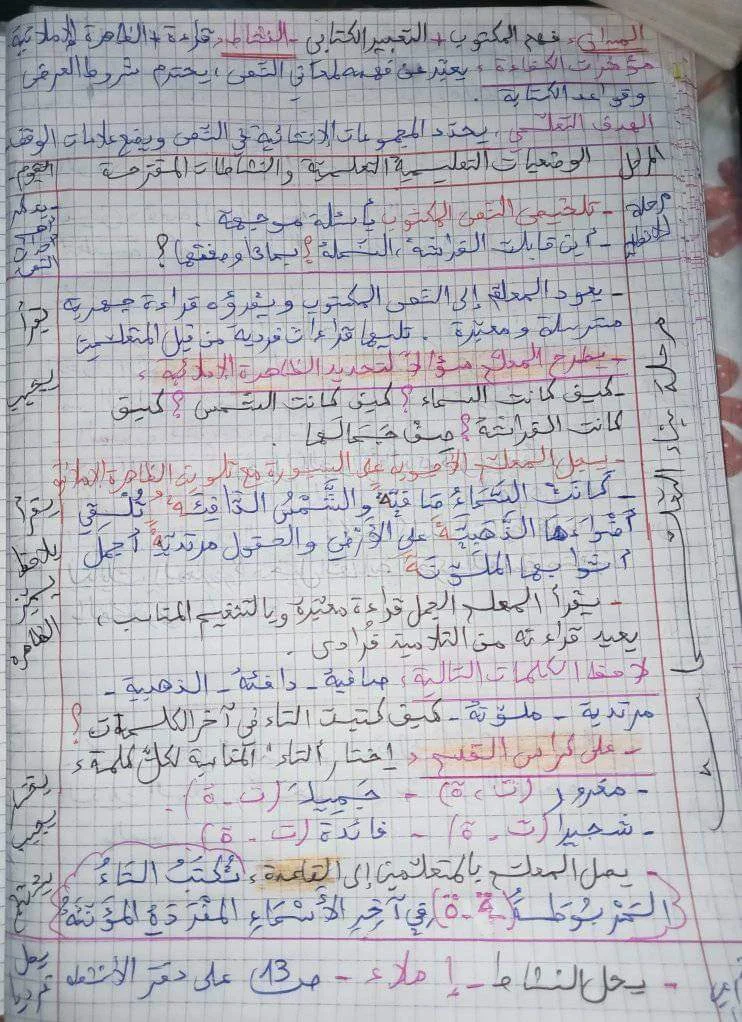 الميدان: فهم المكتوب + التعبير الكتابي - النشاط: قراءة + الظاهرة الإملائية
مؤشرات الكفاءة: يعبّر عن فهمه لمعاني النص، يحترم شروط العرض
وقواعد الكتابة.
الهدف التعلمي: يحدد المجموعات الإنشائية في النص ويضع علامات الوقف
المراحل الوضعيات التعليمية التعلمية والنشاطات المقترحة التقويم
مرحلة الانطلاق
- تلخيص النص المكتوب بأسئلة موجهة.
- أين قابلت الفراشة النملة؟ بماذا وصفتها؟
- يعود المعلم إلى النص المكتوب ويقرؤه قراءة جهرية يقرأ
مسترسلة ومعبّرة. تليها قراءات فردية من قبل المتعلمين
- يطرح المعلم سؤالا لتحديد الظاهرة الإملائية: يجيب
- كيف كانت السماء؟ كيف كانت الشمس؟ كيف
كانت الفراشة؟ صف جمالها.
- يسجل المعلم الأجوبة على السبورة مع تلوين الظاهرة الإملائية
- كَانَت السَّمَاءُ صَافِيَةً والشَّمْسُ الدَّافِئَةُ تُلْقِي يقرأ
أضْوَاءهَا الذَّهَبِيَّةَ على الأرْضِ والحقول مرتديَةً أجمَلَ يلاحظ
أثوابها الملَوّنَةَ يميّز
- يقرأ المعلم الجمل قراءة معبّرة وبالتنغيم المناسب، الظاهرة
يعيد قراءته من التلاميذ فُرادى.
لاحظ الكلمات التالية: صافية - دافئة - الذهبية -
مرتدية - ملوّنة - كيف كتبت التاء في آخر الكلمات؟
- على كراس القسم: إختار التاء المناسبة لكلّ كلمة:
- مغرور (ت ، ة) - جَمِيلَ (ت - ة).
- شجيرا (ت - ة) - فائدة (ت - ة) يجيب
- يصل المعلم بالمتعلمين إلى القاعدة: تُكتَبُ التاءُ
المَرْبُوطَةُ (ـة - ة) في آخِرِ الأسْمَاءِ المُفْرَدَةِ المُؤَنَّثَةُ
- يحل النشاط - إملاء - ص 13 على دفتر الأنشطة يحل فرديا